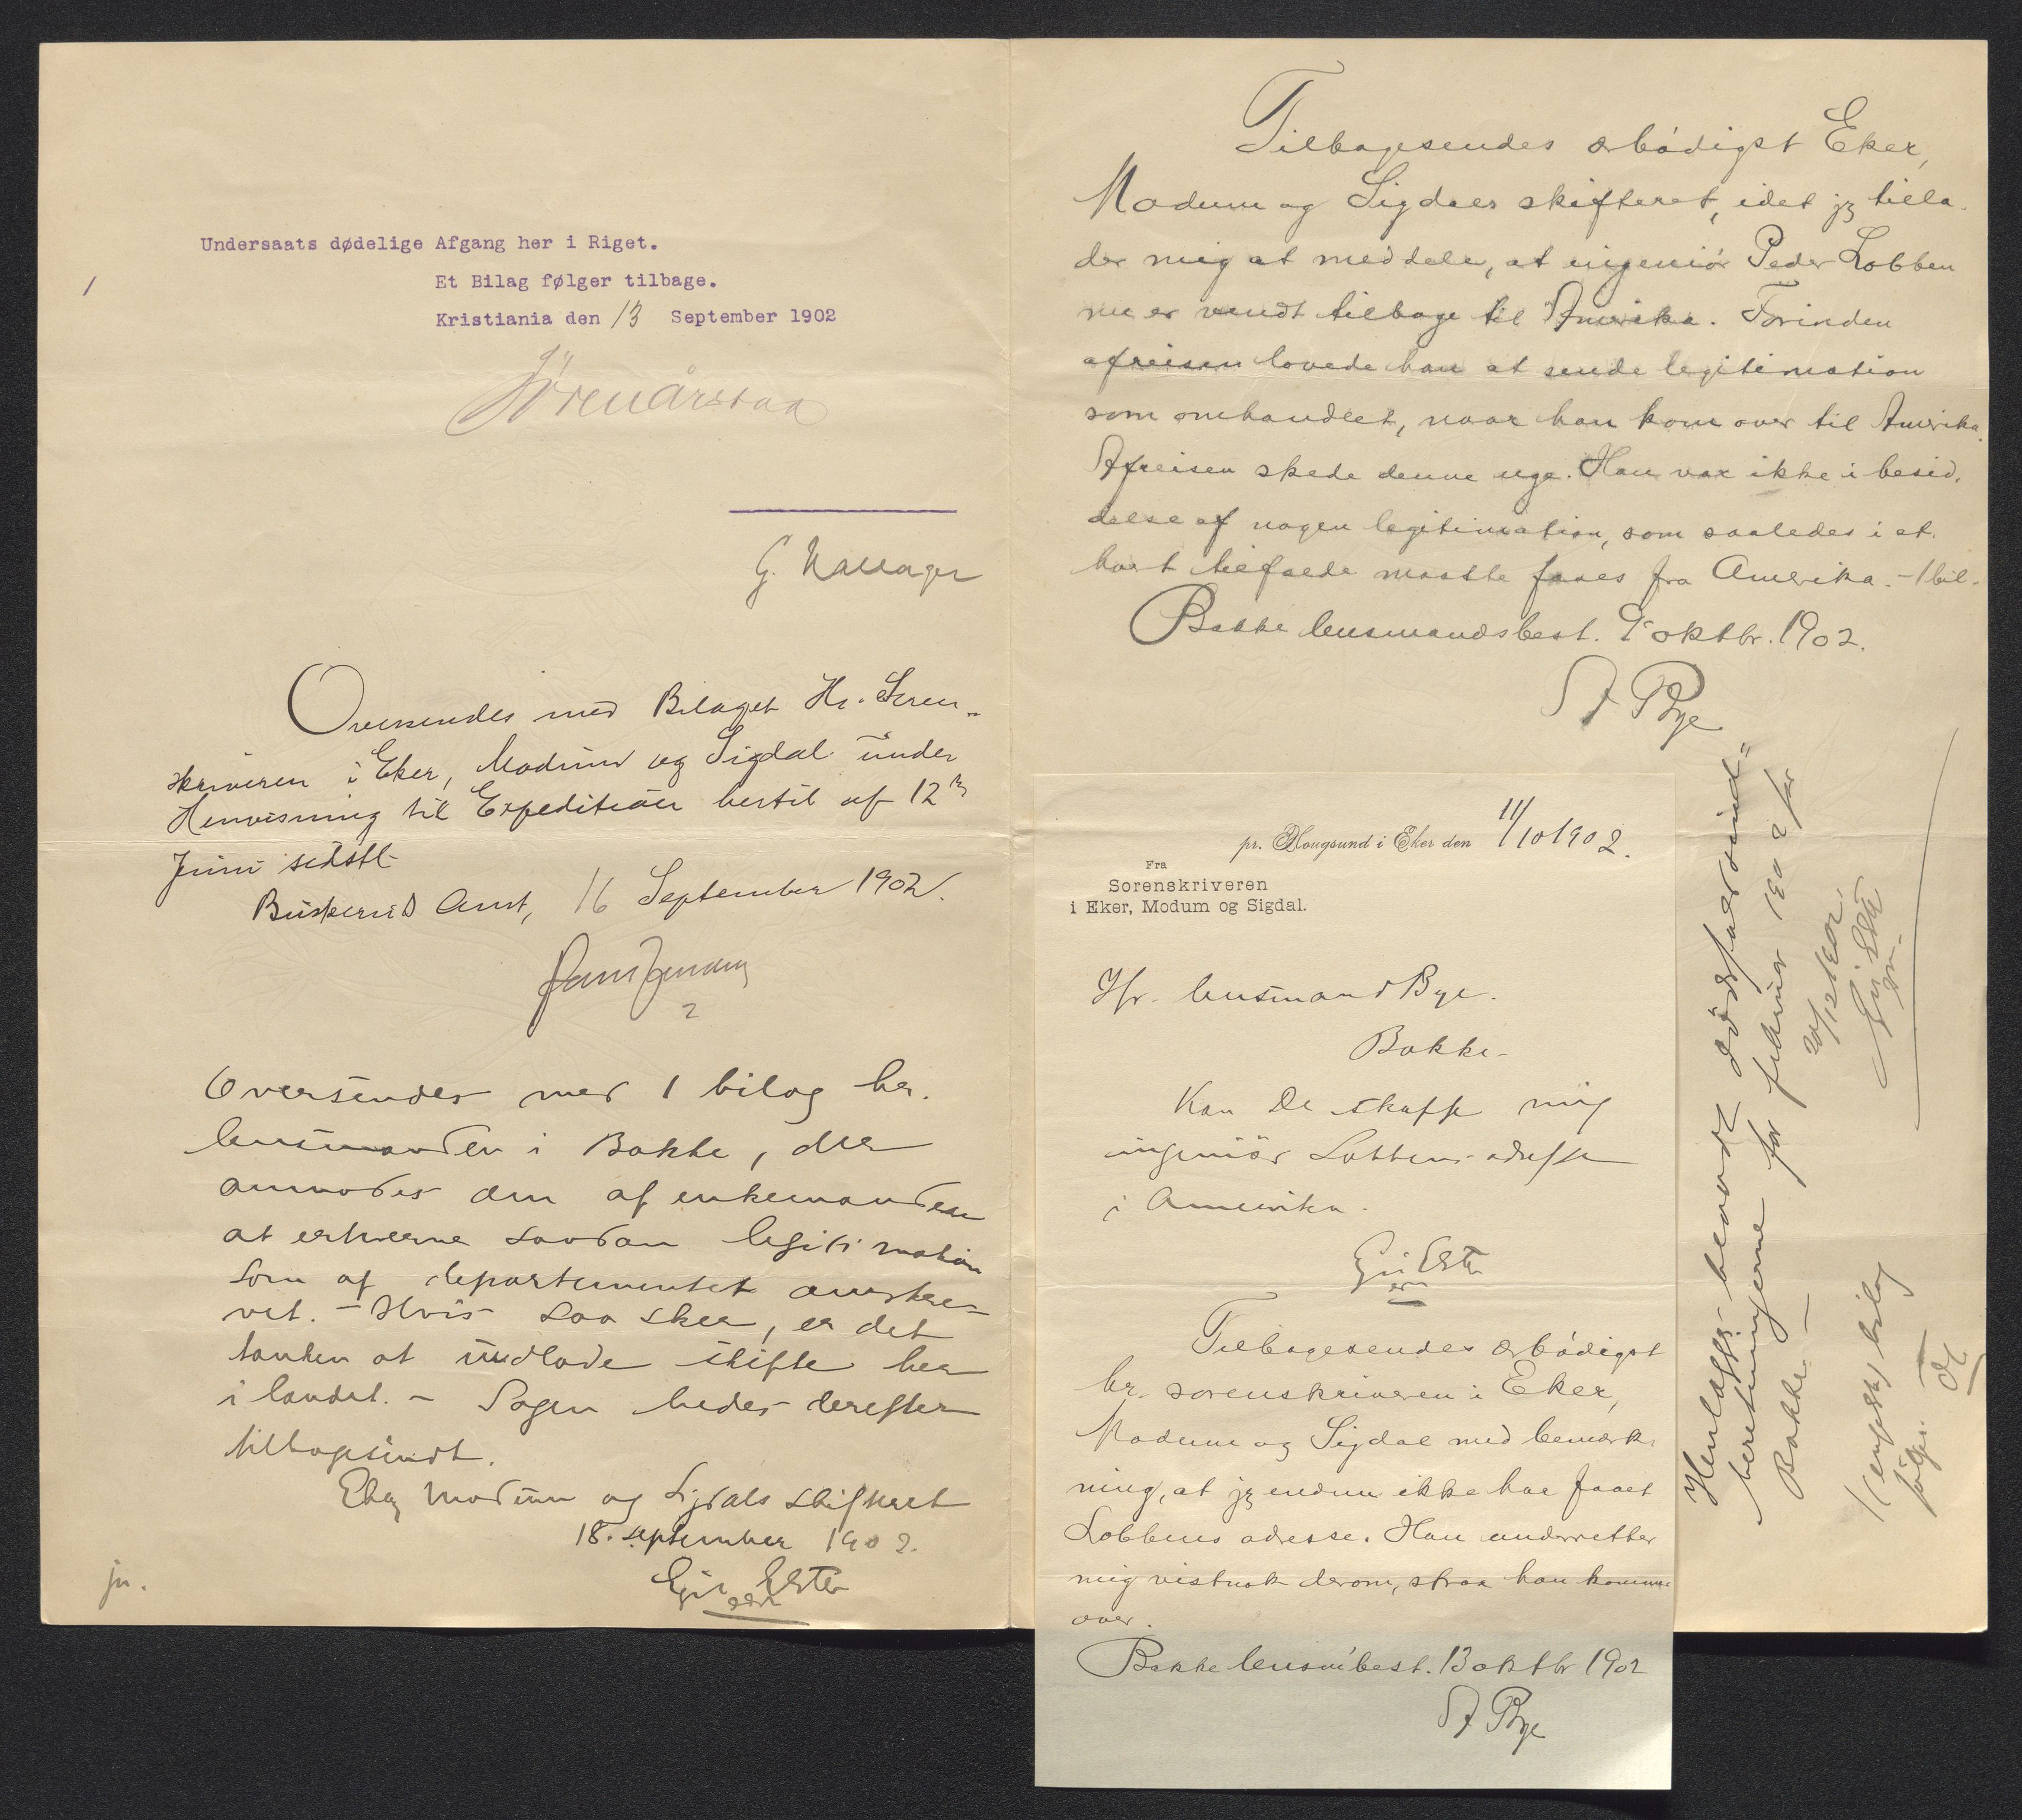 Undersaats dødelige Afgang her i Riget.
Et Bilag følger tilbage.
Kristiania den 13 September 1902
Oversendes med Bilaget Hr. Soren-
skriveren i Eker, Modum og Sigdal under
Henvisning til Expedition hertil af 12te
Juni sidstl.
Buskerud Amt, 16 September 1902.
Oversendes med 1 bilag hr.
lensmanden i Bakke, der
anmodes om af enkemanden
at erhverve saadan legitimation
som af departementet anskre-
vet. - Hvis saa sker, er det
tanken at indlade skifte her
i landet. - Sagen bedes derefter
tilbagesendt.
Eker Modum og Sigdals skifteret
18. september 1902.
Egil Elster
jn.
Tilbagesendes ærbødigst Eker,
Modum og Sigdals skifteret, idet jeg tilla-
der mig at meddele, at ingeniør Peder Lobben
nu er vendt tilbage til Amerika. Forinden
afreisen lovede han at sende legitimation
som omhandlet, naar han kom over til Amerika.
Afreisen skede denne uge. Han var ikke i besid-
delse af nogen legitimation, som saaledes i et-
hvert tilfælde maatte faaes fra Amerika. - 1 bil.
Bakke lensmandsbest. 9 oktbr. 1902.
A Bye
pr. Hougsund i Eker den 11/10 1902.
Fra
Sorenskriveren
i Eker, Modum og Sigdal.
Hr. lensmand Bye.
Bakke.
Kan De skaffe mig
ingeniør Lobbens adresse
i Amerika.
Egil Elster
Tilbagesendes ærbødigst
hr. sorenskriveren i Eker,
Modum og Sigdal med bemærk-
ning, at jeg endnu ikke har faaet
Lobbens adresse. Han underretter
mig vistnok derom, straa han kommer
over.
Bakke lensm.best. 13 oktbr 1902
A Bye
Henlægges blandt dødsfaldsind-
beretningerne for februar 1902 for
Bakke -
20/12 1902.
Egil Elster
1 engelsk bilag
følger.